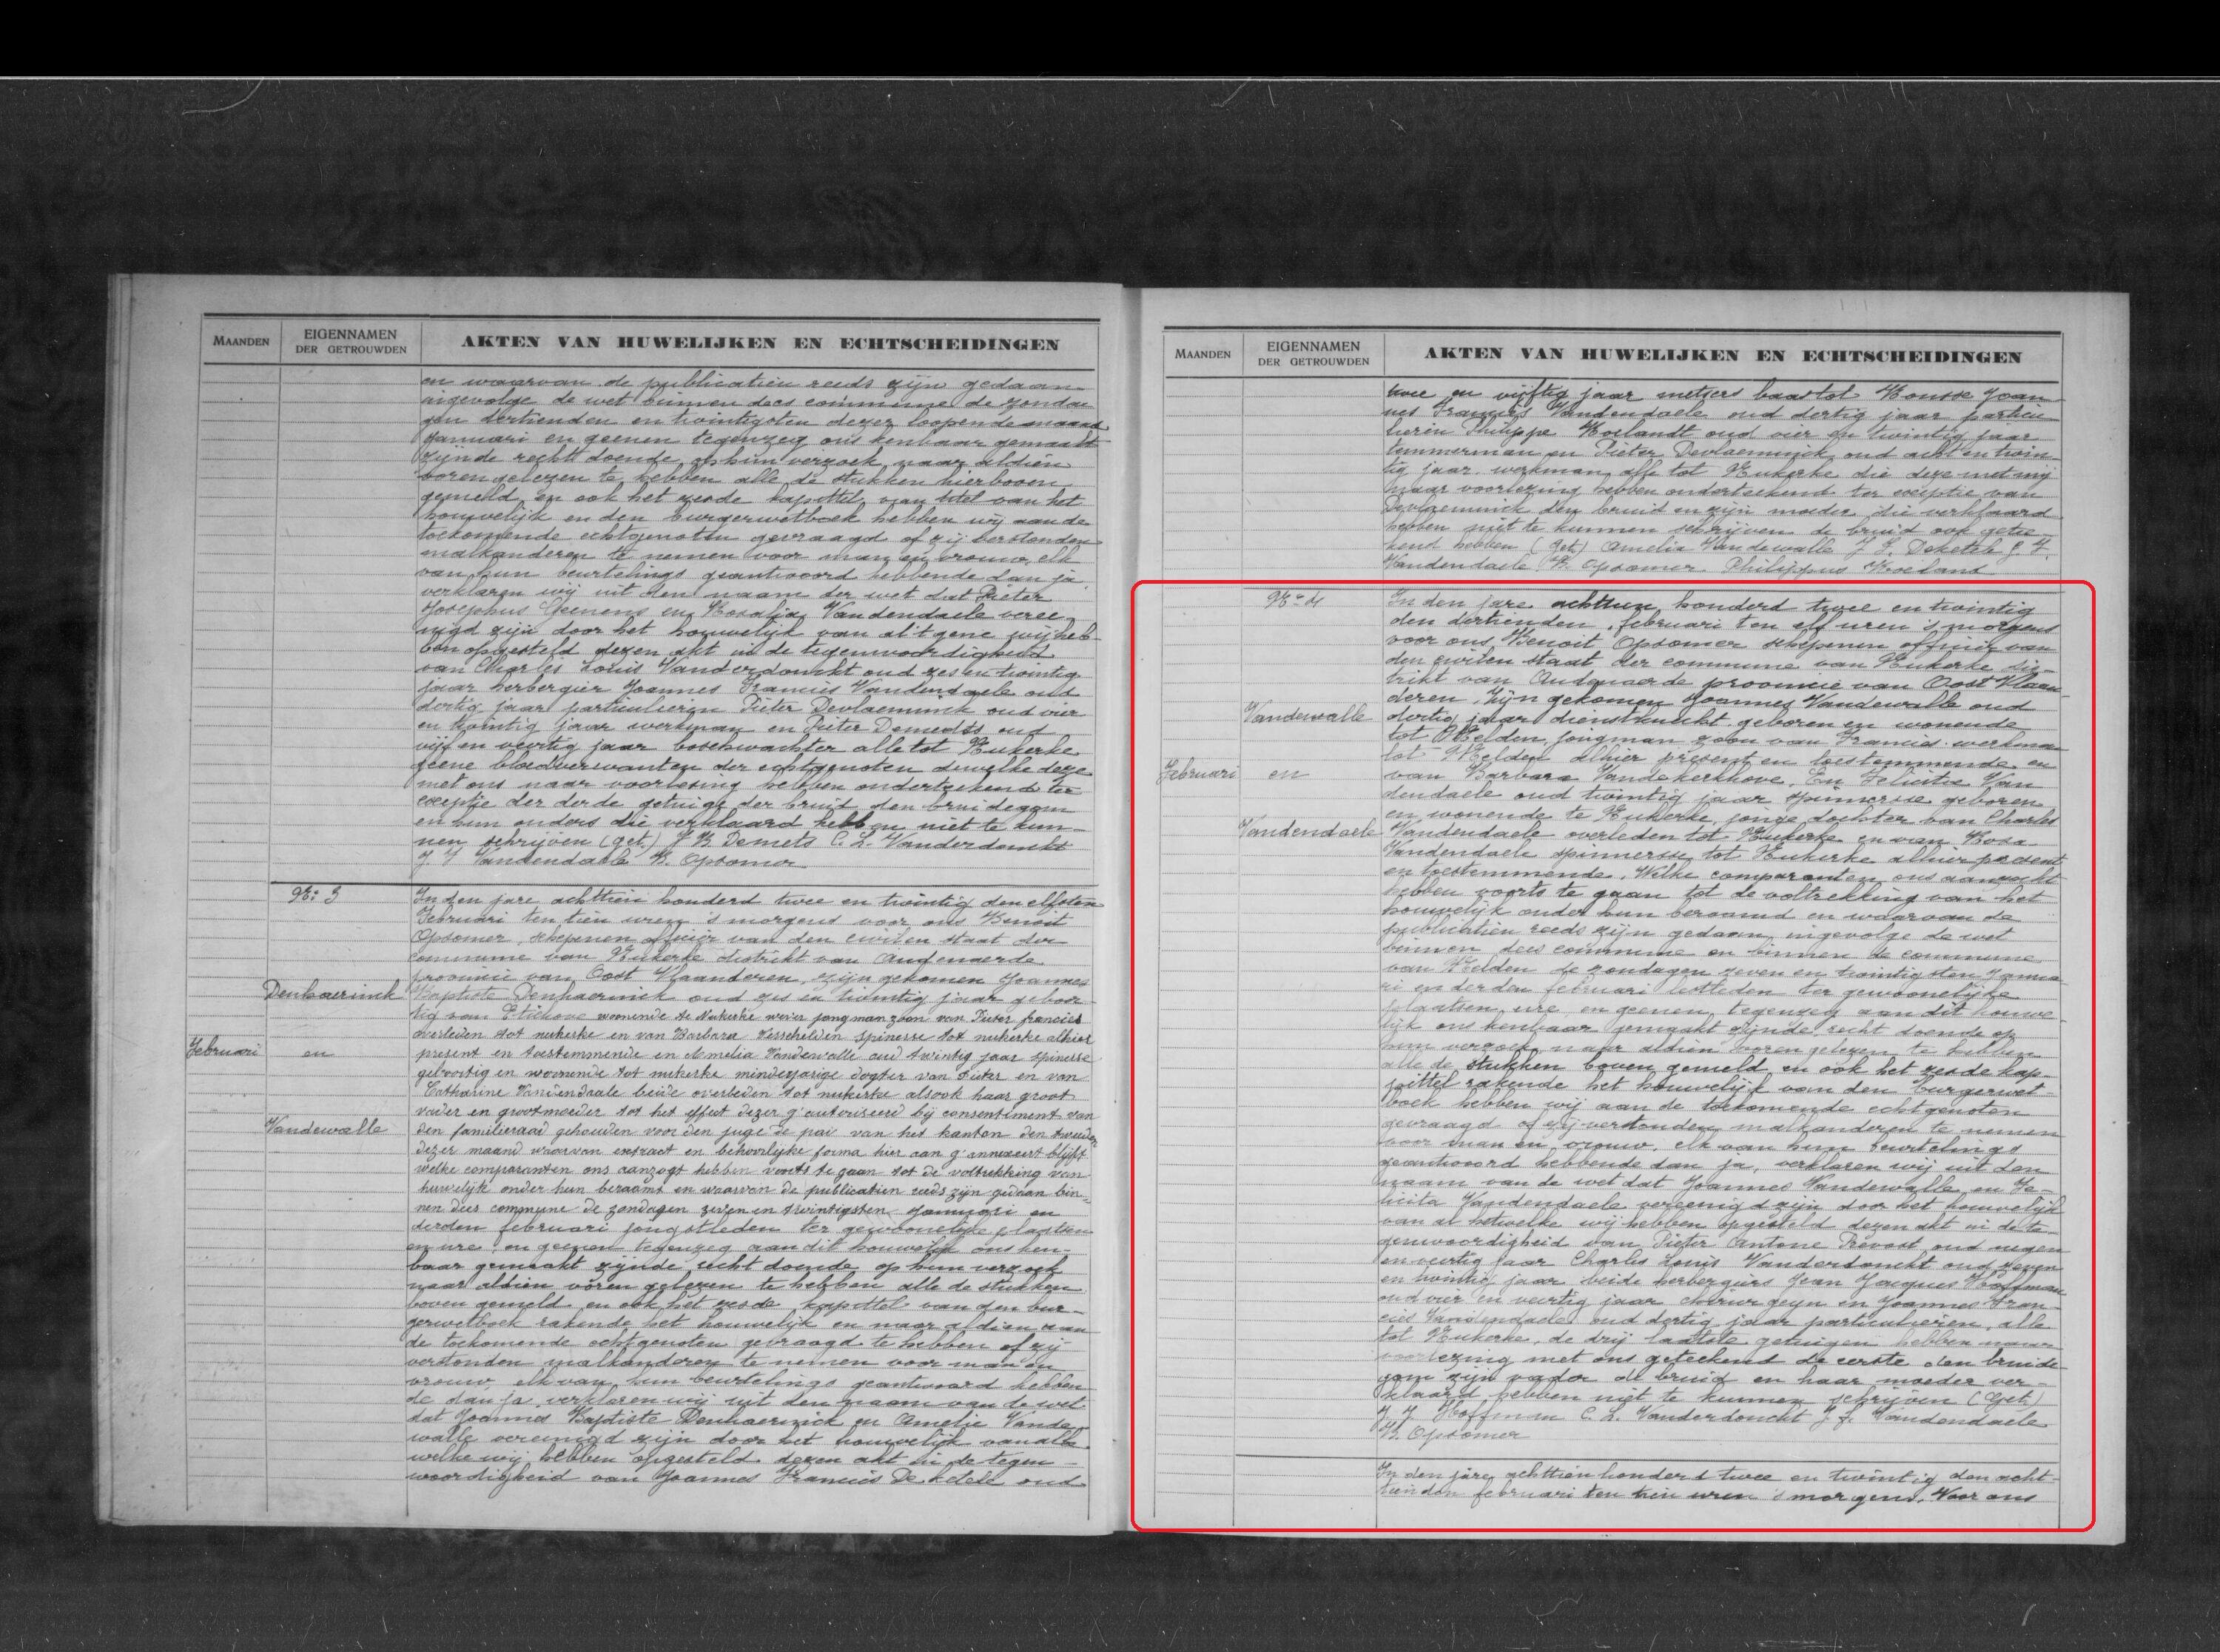 MAANDEN
EIGENNAMEN
DER GETROUWDEN
AKTEN VAN HUWELIJKEN EN ECHTSCHEIDINGEN
en waarvan de publicatien reeds zijn gedaan
ingevolge de wet binnen dees commune de zonda
gen dertienden en twintigsten dezer loopende maand
januari en geenen tegenzeg ons kenbaar gemaakt
zijnde recht doende op hun verzoek naar aldien
voren gelezen te hebben alle de stukken hierboven
gemeld en ook het zesde kapittel van titel van het
houwelijk en den burgerwetboek hebben wij aan de
toekomende echtgenoten gevraagd of zij verstonden
malkanderen te nemen voor man en vrouw, elk
van hun beurtelings geantwoord hebbende dan ja
verklaren wij uit den naam der wet dat Pieter
Josephus Geenens en Rosalia Vandendaele veree
nigd zijn door het houwelijk van al 't gene wij heb
ben opgesteld dezen akt in de tegenwoordigheid
van Charles Louis Vanderdonckt oud zes en twintig
jaar herbergier Joannes Francies Vandendaele oud
dertig jaar particulieren Pieter Devlaeminck oud vier
en twintig jaar werkman en Pieter Demedts oud
vijf en veertig jaar boschwachter alle tot Nukerke
geene bloedverwanten der echtgenoten dewelke deze
met ons naar voorlesing hebben onderteekend ter
exceptie der derde getuige der bruid den bruidegom
en hun ouders die verklaard hebben niet te kun-
nen schrijven (get.) J B Demets C. L. Vanderdonckt
J. J Vandendaele B. Opsomer
No 3
In den jare achttien honderd twee en twintig den elfsten
Februari ten tien uren 's morgens voor ons Benoit
Opsomer, schepenen officier van den civilen staat der
commune van Nukerke distrikt van Audenaerde
provincie van Oost Vlaanderen, zijn gekomen Joannes
Denhaerinck
Baptiste Denhaerinck oud zes en twintig jaar geboor
tig van Etichove woonende te Nukerke wever jongman zoon van Pieter francies
overleden tot nukerke en van Barbara spinesse tot nukerke alhier
Februari
en
present en toestemmende en Amelia Vandewalle oud twintig jaar spinesse
geboortig en woonende tot nukerke minderjarige dogter van Pieter en van
Catharine Vandendaele beide overleden tot nukerke alsook haar groot
vader en grootmoeder tot het effect dezer g'autoriseerd bij consentiment van
Vandewalle
den familieraad gehouden voor den juge de paix van het kanton den tweeden
dezer maand waarvan extract en behoorlijke forma hier aan g'annexeert blijft
welke comparanten ons aanzogt hebben voorts te gaan tot de voltrekking van
huwelijk onder hun beraamt en waarvan de publicatien reeds zijn gedaan bin-
nen dees commune de zondagen zeven en twintigsten januari en
derden februari jongstleden ter gewoonelijke plaatsen
en ure, en geenen tegenzeg aan dit houwelijk ons ken-
baar gemaakt zijnde, recht doende op hun verzoek
naar aldien voren gelezen te hebben alle de stukken
boven gemeld en ook het zesde kapittel van den bur-
gerwetboek rakende het houwelijk en naar aldien aan
de toekomende echtgenoten gevraagd te hebben of zij
verstonden malkanderen te nemen voor man en
vrouw, elk van hun beurtelings geantwoord hebben
de dan ja verklaren wij uit den naam van de wet
dat Joannes Baptiste Denhaerinck en Amelie Vande
walle vereenigd zijn door het houwelijk van alle
welke wij hebben opgesteld dezen akt in de tegen-
woordigheid van Joannes Francies De ketele oud
MAANDEN
EIGENNAMEN
DER GETROUWDEN
AKTEN VAN HUWELIJKEN EN ECHTSCHEIDINGEN
twee en vijftig jaar metsers baas tot Ronsse Joan
nes Francies Vandendaele oud dertig jaar particu
lieren Philippe Roelandt oud vier en twintig jaar
temmerman en Pieter Devlaeminck oud acht en twin-
tig jaar werkman alle tot Nukerke die deze met mij
naar voorlezing hebben onderteekend ter exceptie van
Devlaeminck den bruid en zijn moeder die verklaard
hebben niet te kunnen schrijven de bruid ook getee
kend hebben (get.) Amelia Vandewalle J. F.
Vandendaele B. Opsomer Philippus Roeland
No 4
In den jare achttien honderd twee en twintig
den dertienden februari ten elf uren 's morgens
voor ons Benoit Opsomer schepenen officier van
den civilen staat der commune van Nukerke dis-
trikt van Audenaerde provincie van Oost Vlaan
deren, zijn gekomen Joannes Vandewalle oud
Vandewalle
dertig jaar dienstknecht geboren en wonende
tot Melden jongman zoon van Francies werkman
tot Melden alhier present en toestemmende en
Februari
en
van Barbara Vandekerkhove, En Felicita Van
dendaele oud twintig jaar spinnersse geboren
en wonende te Nukerke, jonge dochter van Charles
Vandendaele
Vandendaele overleden tot Nukerke en van Rosa
Vandendaele spinnersse tot Nukerke alhier present
en toestemmende. Welke comparanten ons aanzocht
hebben voorts te gaan tot de voltrekking van het
houwelijk onder hun beraamd en waarvan de
publicatien reeds zijn gedaan ingevolge de wet
binnen dees commune en binnen de commune
van Melden de zondagen zeven en twintigsten janua
ri en derden februari lestleden ter gewoonelijke
plaatsen ure, en geenen tegenzeg aan dit houwe
lijk ons kenbaar gemaakt zijnde recht doende op
hun verzoek naar aldien voren gelezen te hebben
alle de stukken boven gemeld en ook het zesde kap-
pittel rakende het houwelijk van den burgerwet-
boek hebben wij aan de toekomende echtgenoten
gevraagd of zij verstonden malkanderen te nemen
voor man en vrouw, elk van hun beurtelings
geantwoord hebbende dan ja, verklaren wij uit den
naam van de wet dat Joannes Vandewalle en Fe-
licita Vandendaele vereenigd zijn door het houwelijk
van al hetwelke wij hebben opgesteld dezen akt in de te-
genwoordigheid van Pieter Antone Prevost oud negen
en veertig jaar Charles Louis Vanderdonckt oud zeven
en twintig jaar beide herbergiers Jean Jacques Hoffman
oud vier en veertig jaar chirurgeyn en Joannes Fran-
cies Vandendaele oud dertig jaar particulieren, alle
tot Nukerke, de drij laatste getuigen hebben naar
voorlezing met ons geteekend de eerste den bruide
gom zijn vader de bruid en haar moeder ver-
klaard hebben niet te kunnen schrijven (Get.)
J. J. Hoffman C. L. Vanderdonckt J. F. Vandendaele
B. Opsomer
In den jare achttien honderd twee en twintig den acht-
tienden februari ten tien uren 's morgens, Voor ons